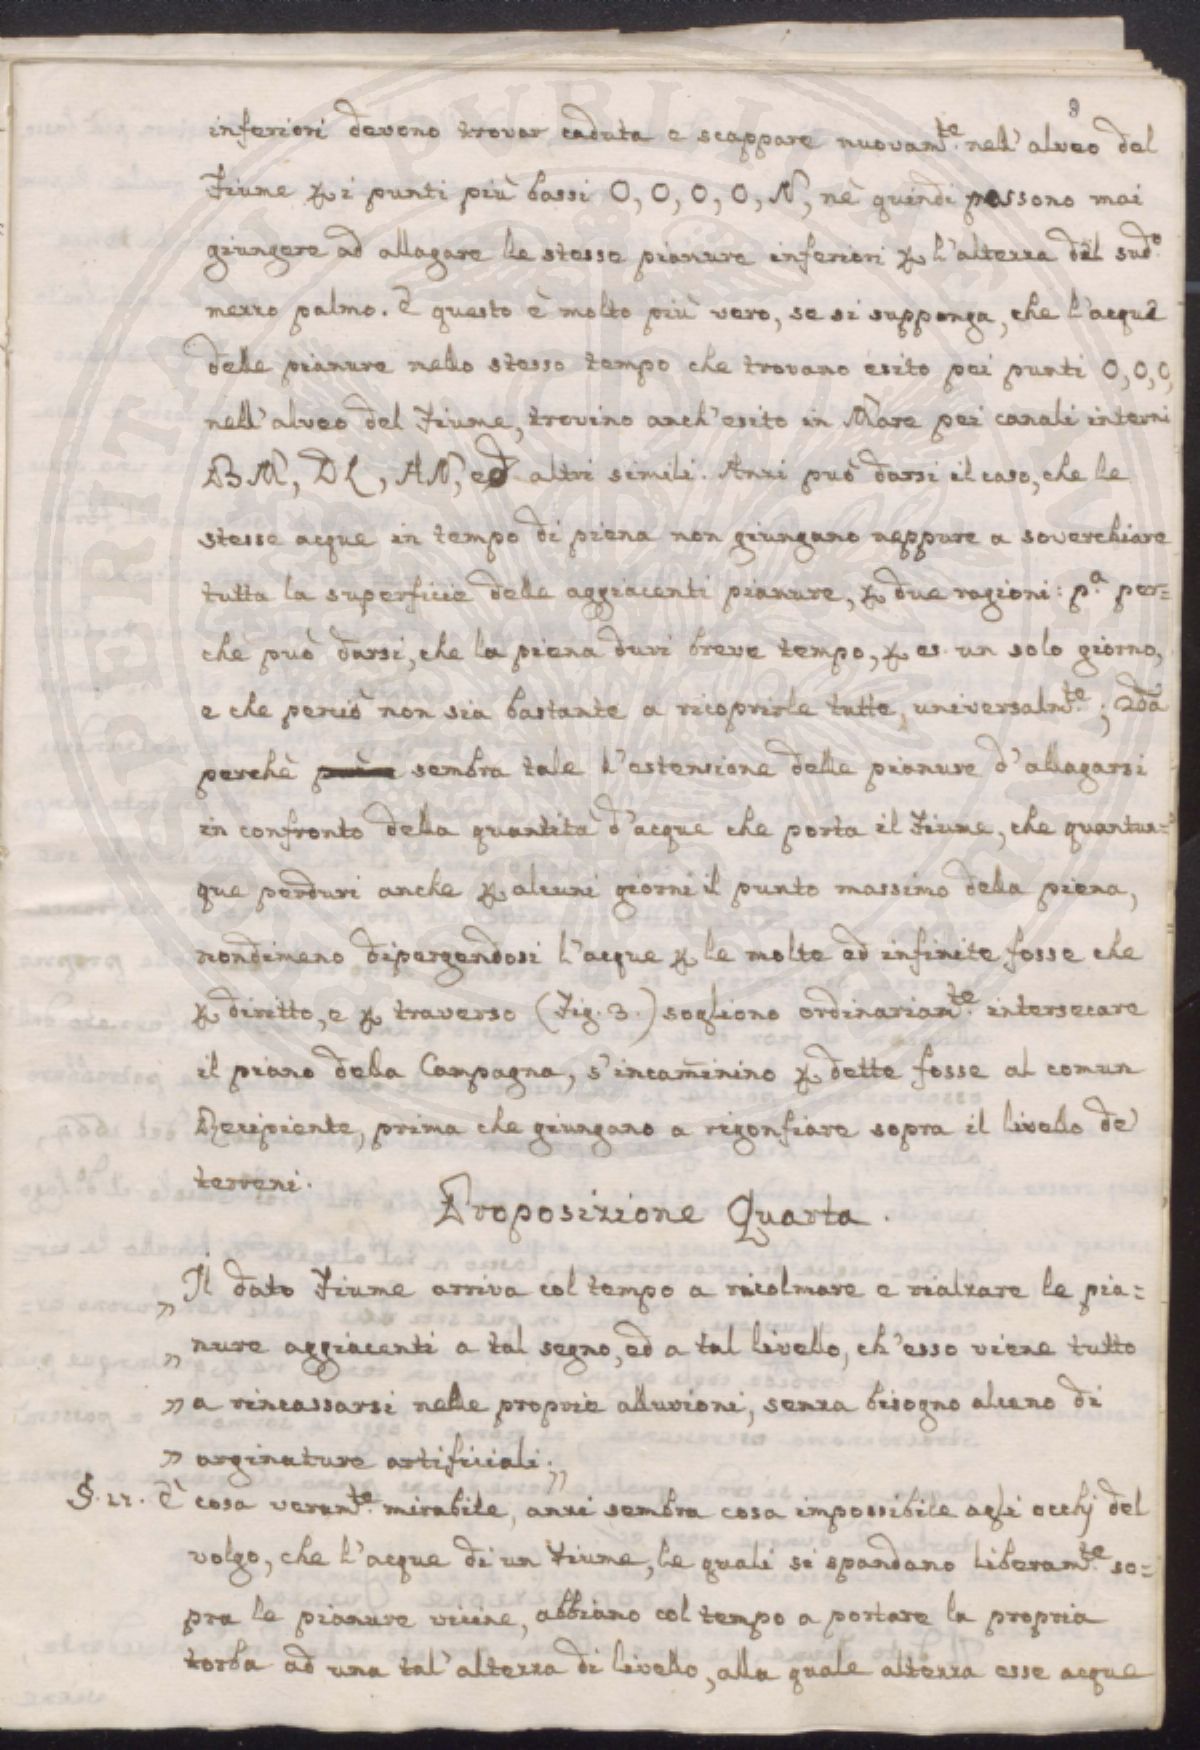 8
inferiori devono trovar caduta e scappare nuovam.te nell'alveo del
Fiume p i punti più bassi O, O, O, O, N, nè quindi possono mai
giungere ad allagare le stesse pianure inferiori p l'altezza del sud.o
mezzo palmo. E questo è molto più vero, se si supponga, che l'acque
delle pianure nello stesso tempo che trovano esito pei punti O, O, O,
nell'alveo del Fiume, trovino anch'esito in Mare pei canali interni
BM, DL, AN, ed altri simili. Anzi può darsi il caso, che le
stesse acque in tempo di piena non giungano neppure a soverchiare
tutta la superficie delle aggiacenti pianure, p due ragioni: p.a per=
chè può darsi, che la piena duri breve tempo, p es. un solo giorno,
e che perciò non sia bastante a ricoprirle tutte, universalm.te; 2da
perchè sembra tale l'estensione delle pianure d'allagarsi
in confronto della quantità d'acque che porta il Fiume, che quantun=
que perduri anche p alcuni giorni il punto massimo della piena,
nondimeno dipergendosi l'acque p le molte ed infinite fosse che
p diritto, e p traverso (Fig. 3.) sogliono ordinariam.te intersecare
il piano della Campagna, s'incam̄inino p dette fosse al comun
Recipiente, prima che giungano a rigonfiare sopra il livello de'
terreni.
Proposizione Quarta.
„ Il dato Fiume arriva col tempo a ricolmare e rialzare le pia=
„ nure aggiacenti a tal segno, ed a tal livello, ch'esso viene tutto
„ a rincassarsi nelle proprie alluvioni, senza bisogno alcuno di
„ arginature artificiali.„
§. 11. È cosa veram.te mirabile, anzi sembra cosa impossibile agli occhj del
volgo, che l'acque di un Fiume, le quali si spandano liberam.te so=
pra le pianure vicine, abbiano col tempo a portare la propria
torba ad una tal'altezza di livello, alla quale altezza esse acque
SPERITAS PUBLICA